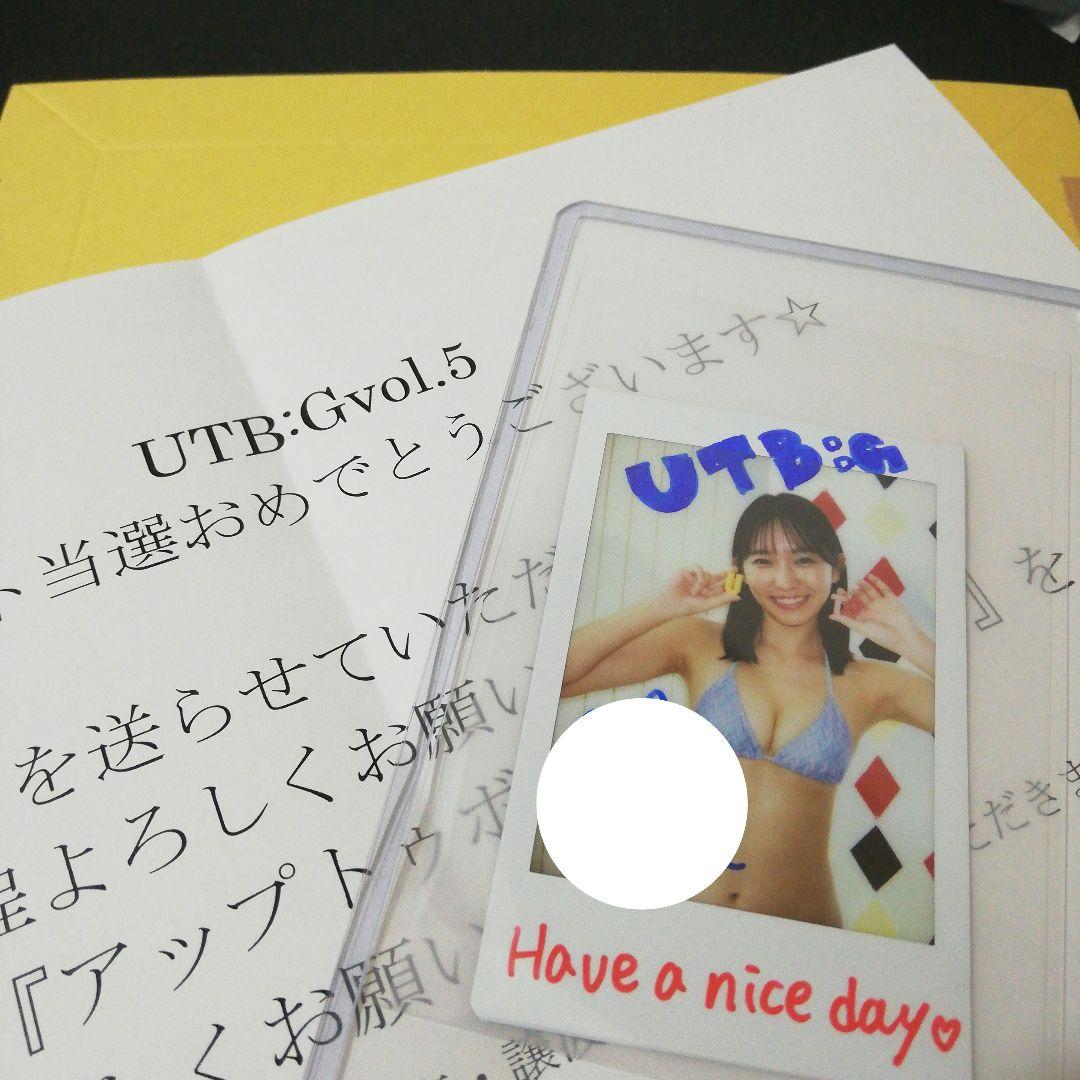 UTB:Gvol.5
ト当選おめでとうございます☆
を送らせていただ
』を
程よろしくお願い
ただきま
『アップトゥボ
くお願い
UTB:G
Have a nice day♡